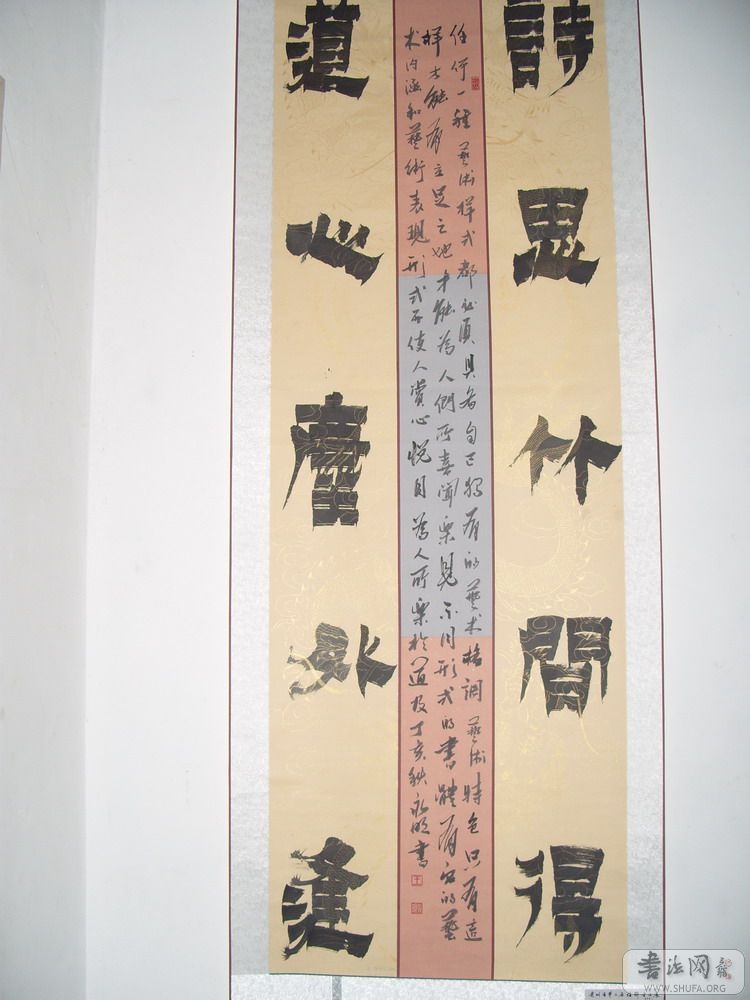 詩思竹間得
道心塵外逢
任何一種藝術樣式都必須具备自己独有的藝术格調藝術特色只有這
样才能有立足之地才能為人們所喜聞樂見不同形式的書體有它的藝
术内涵和藝術表現形式不使人賞心悦目為人所樂於道哉丁亥秋永明書
書法网
WWW.SHUFA.ORG